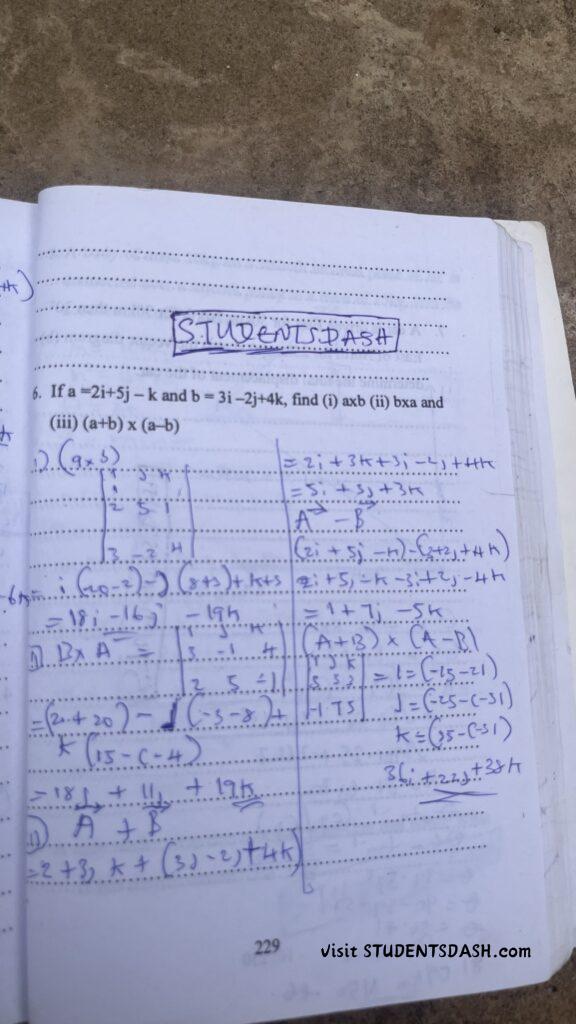 STUDENTSDASH
6. If a =2i+5j – k and b = 3i –2j+4k, find (i) axb (ii) bxa and
(iii) (a+b) x (a–b)
i) (a x b)
i j k
2 5 1
3 -2 4
= i (20-2) - j (8+3) + k+3
= 18i - 16j - 19k
ii) B x A =
i j k
3 -1 4
2 5 -1
= (2i + 20) - j (-3-8) +
k (15 - (-4)
= 18i + 11j + 19k
A + B
= 2 + 3j k + (3j - 2j + 4k)
= 2i + 3k + 3i - 2j + 4k
= 5i + 3j + 3k
A - B
(2i + 5j - k) - (3+2j + 4k)
2i + 5j - k - 3i + 2j - 4k
= 1 + 7j - 5k
(A+B) x (A-B)
i j k
5 3 3
-1 7 5
= i = (-15-21)
j = (-25-(-31)
k = (35-(-31)
36i + 22j + 38k
229
visit STUDENTSDASH.com